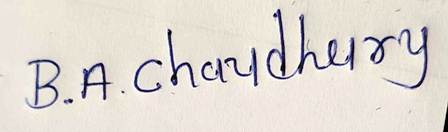 B.A. Chaudhury